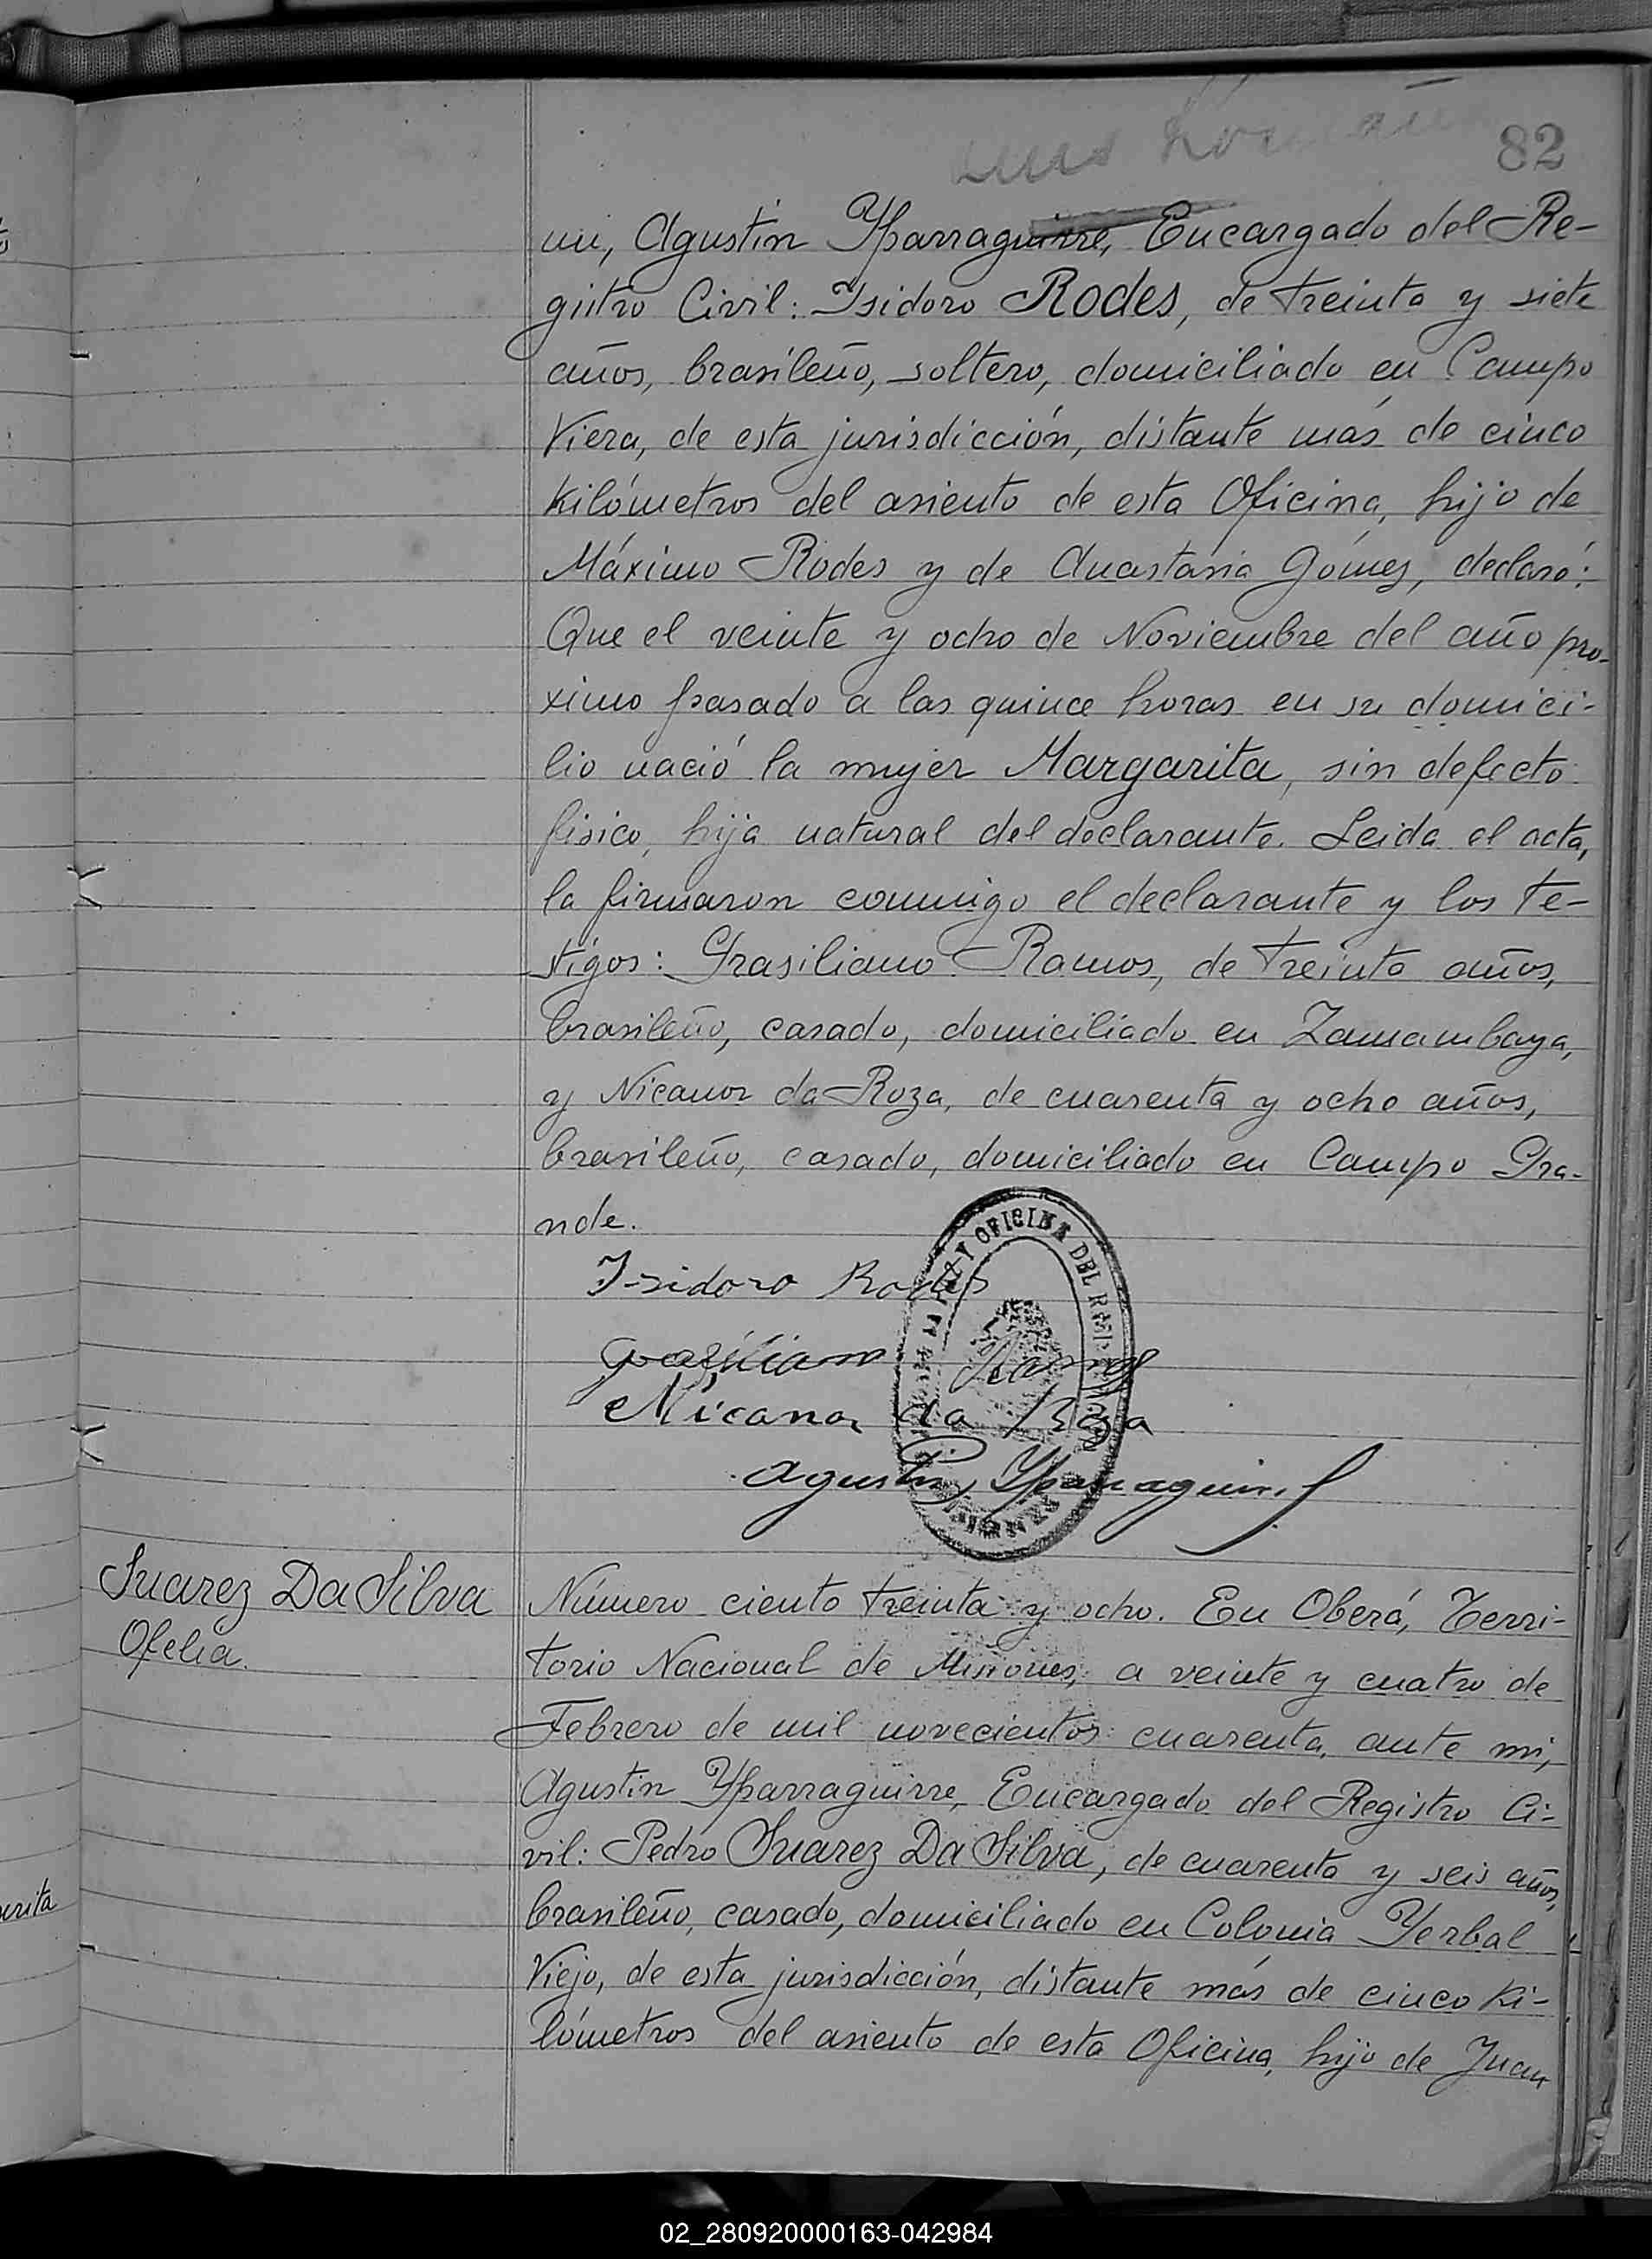 82
mi, Agustin Yparraguirre, Encargado del Re-
gistro Civil: Isidoro Rodes, de treinta y siete
años, brasileño, soltero, domiciliado en Campo
Viera, de esta jurisdicción, distante más de cinco
kilómetros del asiento de esta Oficina, hijo de
Máximo Rodes y de Anastasia Gómez, declaró:
Que el veinte y ocho de Noviembre del año pro-
ximo pasado a las quince horas en su domici-
lio nació la mujer Margarita, sin defecto
fisico, hija natural del declarante. Leida el acta,
la firmaron conmigo el declarante y los te-
stigos: Grasiliano Ramos, de treinta años,
brasileño, casado, domiciliado en Zamambaya,
y Nicanor da Roza, de cuarenta y ocho años,
brasileño, casado, domiciliado en Campo Gra-
nde.
Isidoro Rodes
Grasiliano Ramos
Nicanor da Roza
Agustin Yparraguirre
Y OFICINA DEL
Suarez Da Silva
Ofelia.
Número ciento treinta y ocho. En Oberá, Terri-
torio Nacional de Misiones, a veinte y cuatro de
Febrero de mil novecientos cuarenta, ante mi,
Agustin Yparraguirre, Encargado del Registro Ci-
vil: Pedro Suarez Da Silva, de cuarenta y seis años,
brasileño, casado, domiciliado en Colonia Yerbal
Viejo, de esta jurisdicción, distante más de cinco ki-
lómetros del asiento de esta Oficina, hijo de Juan
02_280920000163-042984